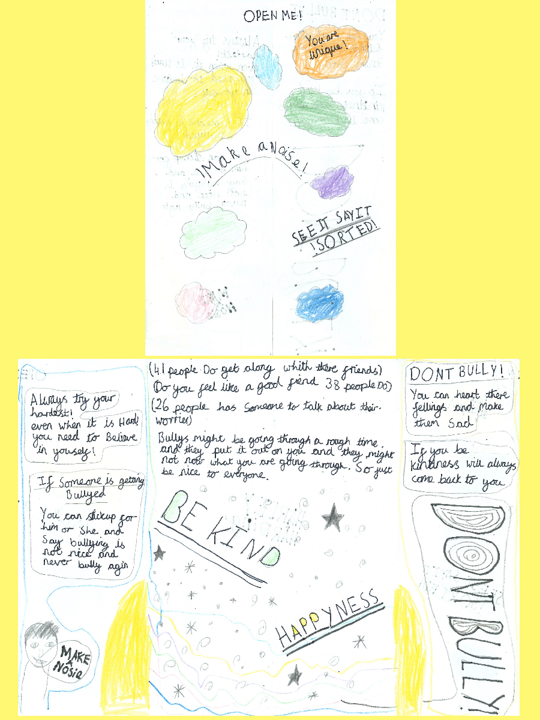 OPEN ME!
You are
unique!
!Make a Noise!
SEE IT SAY IT
!SORTED!
Always try your
hardest!
even when it is Hard
you need to Believe
in youself!
If Someone is getting
Bullyed
You can stickup for
him or She and
Say bullying is
not nice and
never bully agin
MAKE
A
NOSIE
(41 people Do get along whith there friends)
(Do you feel like a good fiend 38 people Do)
(26 people has Someone to talk about their
worries)
Bullys might be going through a rough time
and they put it out on you and they might
not now what you are going through. So just
be nice to everyone.
BE KIND
HAPPYNESS
DONT BULLY!
You can heart there
fellings and make
them Sad
If you be
kindness will always
come back to you.
DONT BULLY!